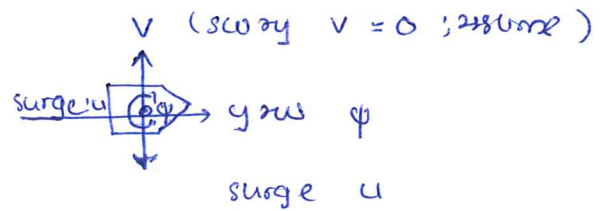 V (sway V = 0 ; assume)
surge: u ψ yaw ψ
surge u